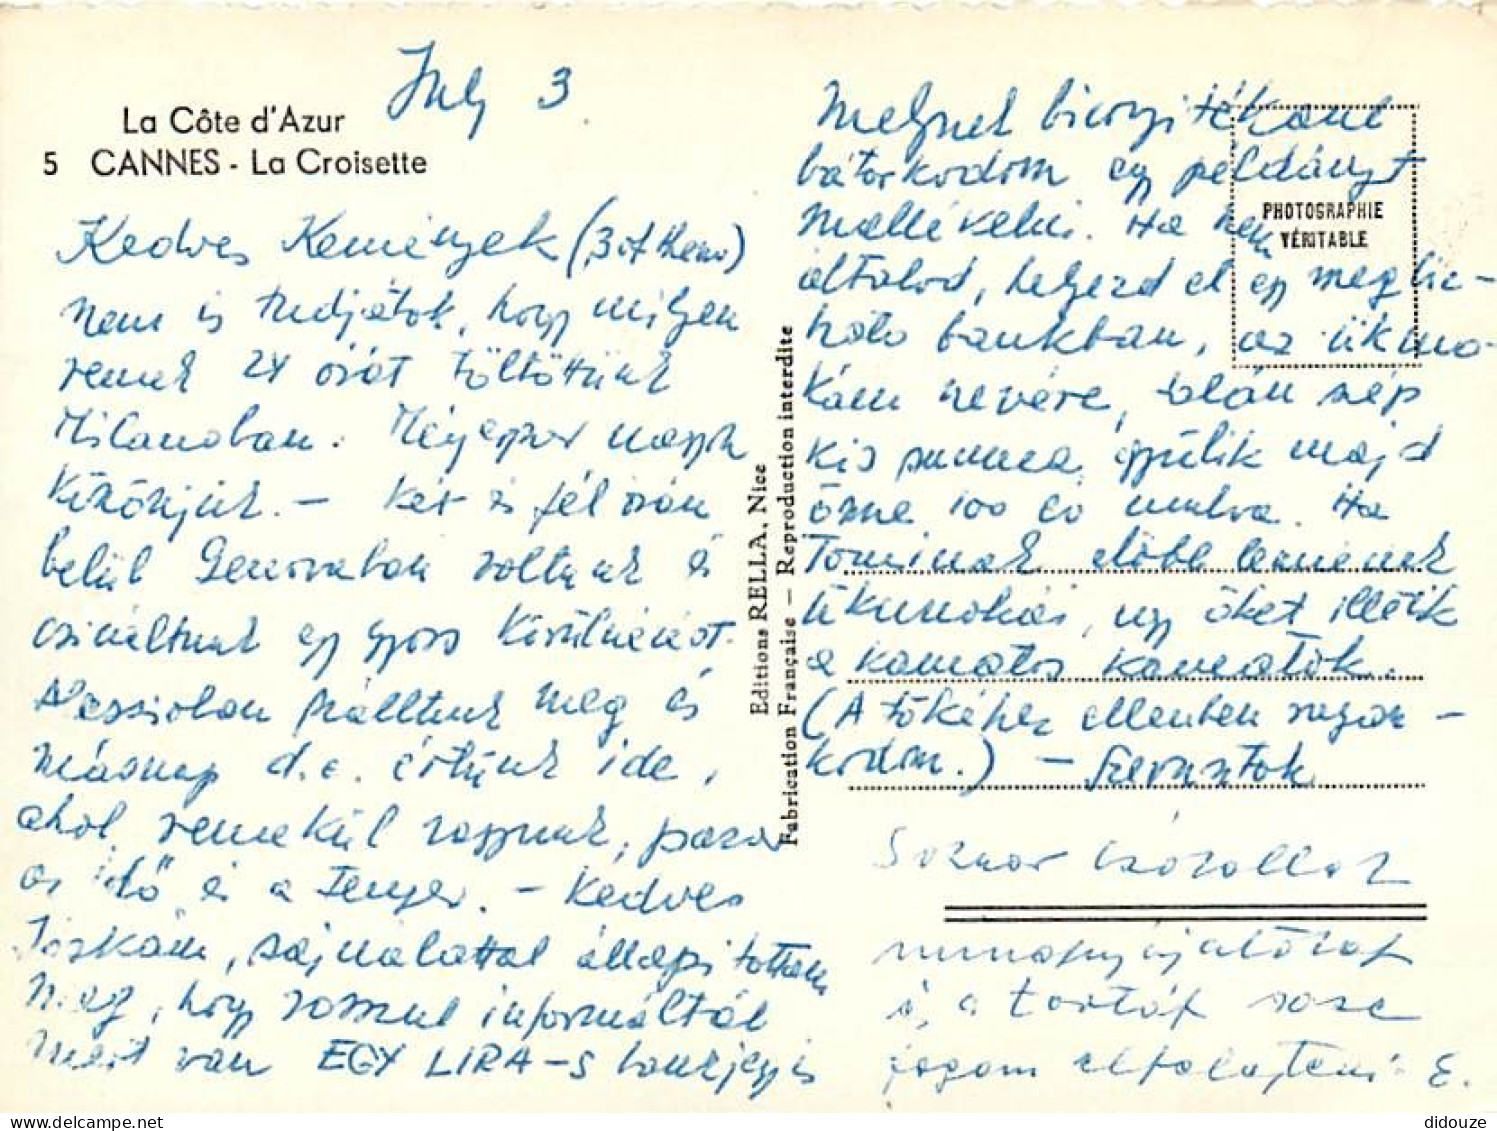 July 3
La Côte d'Azur
5 CANNES - La Croisette
Kedves Kemények (3 of them)
nem is tudjátok, hogy milyen
remek 24 órát töltöttünk
Milanoban. Mégegyszer nagyon
köszönjük. - Két és fél órán
belül Genovaban voltunk és
csináltunk egy gyors körülnézést.
Alassioban szálltunk meg és
másnap d.e. értünk ide,
ahol remekül vagyunk, pazar
az idő és a tenger. - Kedves
Jóskám, sajnálattal állapítottam
meg, hogy rosszul informáltál
mert van EGY LIRA-s bankjegy is
Melynek bizonyitékaul
bátorkodom egy példányt
mellékelni. Ha nem
áltatod, helyezd el egy megbiz-
ható bankban, az ükuno-
kám nevére, talán szép
kis summa gyűlik majd
össze 100 év mulva. Ha
Tominak előbb lennének
ükunokái, ugy őket illetik
a kamatos kamatok.
(A tőkéhez ellenben ragasz-
kodom.) - Servusztok
Sokszor csókollak
és a tortát sose
fogom elfelejteni. E.
PHOTOGRAPHIE
VÉRITABLE
Editions RELLA, Nice
Fabrication Française - Reproduction interdite
didouze